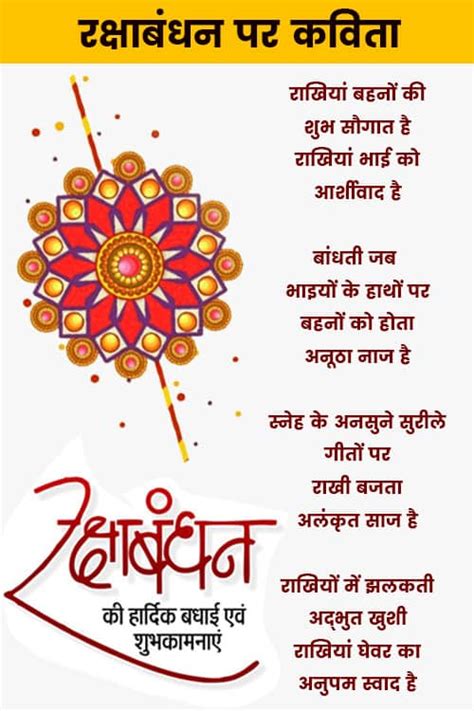 रक्षाबंधन पर कविता
राखियां बहनों की
शुभ सौगात है
राखियां भाई को
आर्शीवाद है
बांधती जब
भाइयों के हाथों पर
बहनों को होता
अनूठा नाज है
स्नेह के अनसुने सुरीले
गीतों पर
राखी बजता
अलंकृत साज है
राखियों में झलकती
अद्भुत खुशी
राखियां घेवर का
अनुपम स्वाद है
रक्षाबंधन
की हार्दिक बधाई एवं
शुभकामनाएं